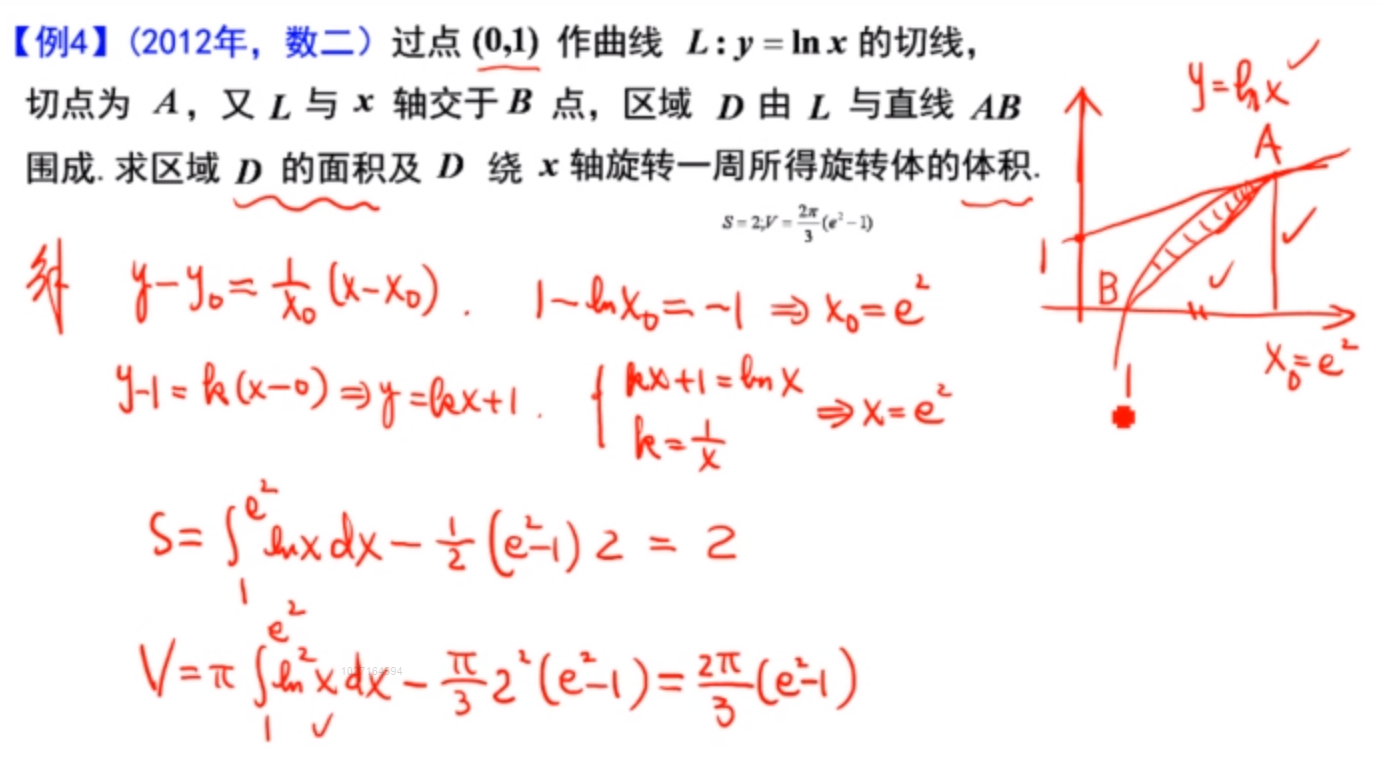 【例4】(2012年，数二）过点 (0,1) 作曲线 L : y = ln x 的切线，
切点为 A，又 L 与 x 轴交于 B 点，区域 D 由 L 与直线 AB
围成. 求区域 D 的面积及 D 绕 x 轴旋转一周所得旋转体的体积.
S = 2; V = 2π/3 (e² − 1)
y = ln x
A
1
B
x₀ = e²
1
解 y − y₀ = 1/x₀ (x − x₀) . 1 − ln x₀ = −1 ⇒ x₀ = e²
y − 1 = k(x − 0) ⇒ y = kx + 1 . { kx + 1 = ln x
k = 1/x ⇒ x = e²
S = ∫₁^{e²} ln x dx − 1/2 (e² − 1) 2 = 2
V = π ∫₁^{e²} ln² x dx − π/3 2² (e² − 1) = 2π/3 (e² − 1)